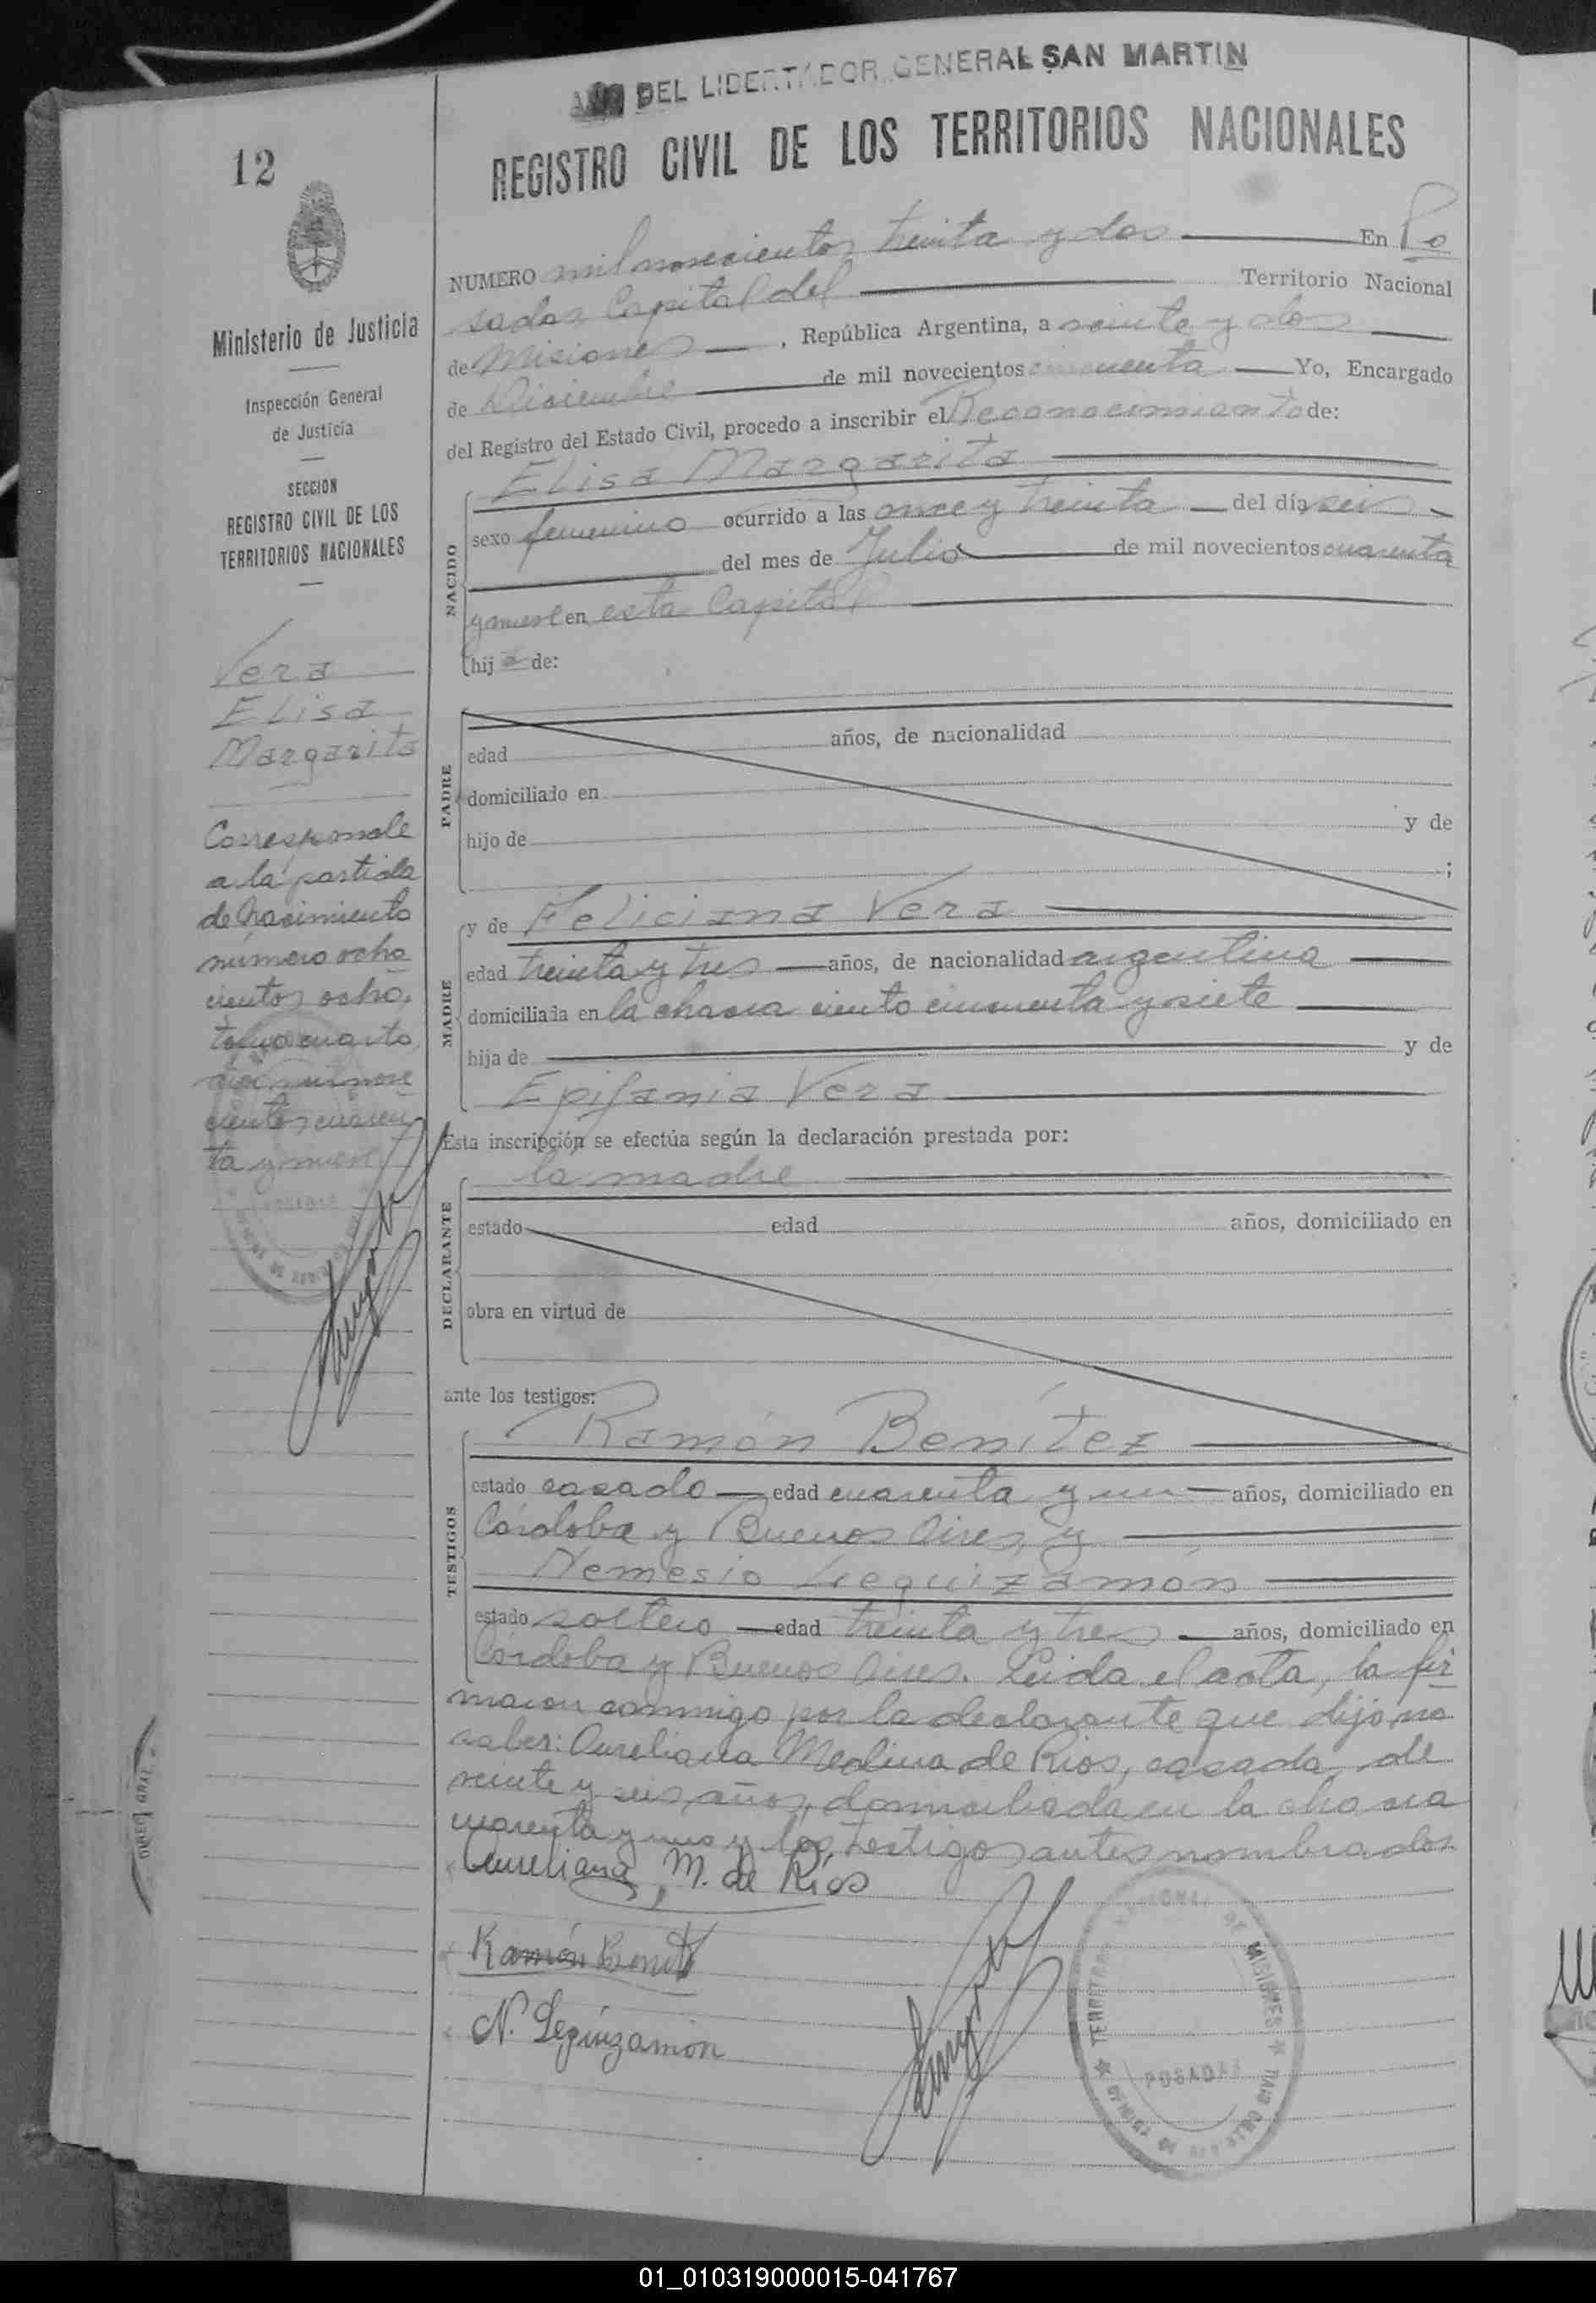 AÑO DEL LIBERTADOR GENERAL SAN MARTIN
REGISTRO CIVIL DE LOS TERRITORIOS NACIONALES
12
Ministerio de Justicia
Inspección General
de Justicia
SECCION
REGISTRO CIVIL DE LOS
TERRITORIOS NACIONALES
Vera
Elisa
Margarita
Corresponde
a la partida
de Nacimiento
número ocho
cientos ocho,
tomo cuarto
mil nove
cientos cuaren
ta y nueve
NUMERO mil novecientos treinta y dos En Po
sadas Capital del Territorio Nacional
de Misiones, República Argentina, a veinte y dos
de Diciembre de mil novecientos cincuenta Yo, Encargado
del Registro del Estado Civil, procedo a inscribir el Reconocimiento de:
Elisa Margarita
NACIDO
sexo femenino ocurrido a las once y treinta del día seis
del mes de Julio de mil novecientos cuarenta
y nueve en esta Capital
hija de:
PADRE
edad años, de nacionalidad
domiciliado en
hijo de y de
;
MADRE
y de Feliciana Vera
edad treinta y tres años, de nacionalidad argentina
domiciliada en la chacra ciento cincuenta y siete
hija de y de
Epifania Vera
Esta inscripción se efectúa según la declaración prestada por:
la madre
DECLARANTE
estado edad años, domiciliado en
obra en virtud de
ante los testigos:
Ramón Benítez
TESTIGOS
estado casado edad cuarenta y un años, domiciliado en
Córdoba y Buenos Aires, y
Nemesio Leguizamón
estado soltero edad treinta y tres años, domiciliado en
Córdoba y Buenos Aires. Leida el acta, la fir
maron conmigo por la declarante que dijo no
saber: Aureliana Medina de Rios, casada, de
veinte y seis años, domiciliada en la chacra
cuarenta y uno y los testigos antes nombrados
Aureliana, M. de Ríos
Ramón Benitez
N. Leguizamón
TERRITORIO NACIONAL DE MISIONES
POSADAS
01_010319000015-041767